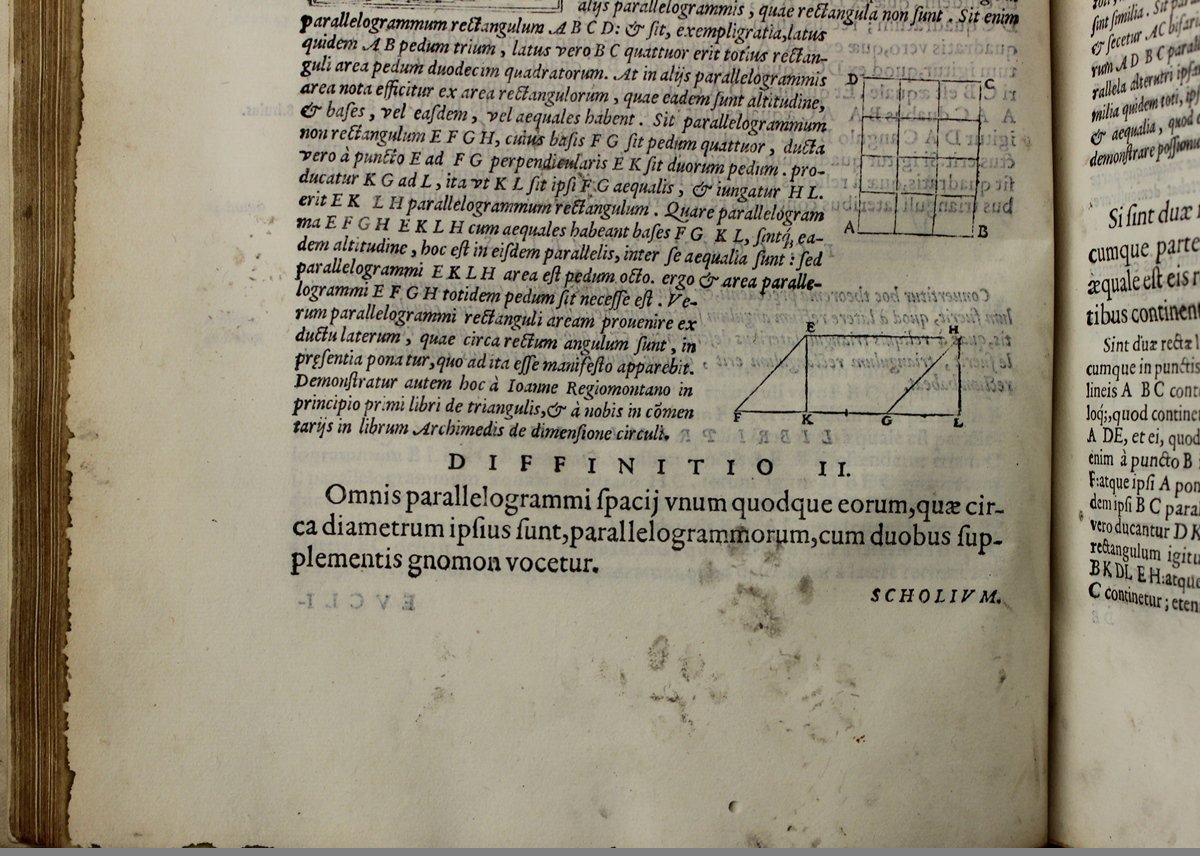 alijs parallelogrammis, quae rectangula non sunt. Sit enim
parallelogrammum rectangulum A B C D: & sit, exempli gratia, latus
quidem A B pedum trium, latus vero B C quattuor erit totius rectan-
guli area pedum duodecim quadratorum. At in alijs parallelogrammis
area nota efficitur ex area rectangulorum, quae eadem sunt altitudine,
& bases, vel easdem, vel aequales habent. Sit parallelogrammum
non rectangulum E F G H, cuius basis F G sit pedum quattuor, ducta
vero à puncto E ad F G perpendicularis E K sit duorum pedum. pro-
ducatur K G ad L, ita vt K L sit ipsi F G aequalis, & iungatur H L.
erit E K L H parallelogrammum rectangulum. Quare parallelogram
ma E F G H E K L H cum aequales habeant bases F G K L, sintq; ea-
dem altitudine, hoc est in eisdem parallelis, inter se aequalia sunt: sed
parallelogrammi E K L H area est pedum octo. ergo & area paralle-
logrammi E F G H totidem pedum sit necesse est. Ve-
rum parallelogrammi rectanguli aream prouenire ex
ductu laterum, quae circa rectum angulum sunt, in
presentia ponatur, quo ad ita esse manifesto apparebit.
Demonstratur autem hoc à Ioanne Regiomontano in
principio primi libri de triangulis, & à nobis in cõmen
tarijs in librum Archimedis de dimensione circuli.
D C
A B
E H
F K G L
DIFFINITIO II.
Omnis parallelogrammi spacij vnum quodque eorum, quæ cir-
ca diametrum ipsius sunt, parallelogrammorum, cum duobus sup-
plementis gnomon vocetur.
SCHOLIVM.
sint similia. Sit
& secetur AC bifar
rum A D B C paral
rallela alterutri ipsar
milia quidem toti, ip
& aequalia, quod
demonstrare possumus
Si sint duæ
cumque parte
æquale est eis
tibus continen
Sint duæ rectæ l
cumque in punctis
lineis A BC cont
loq;, quod contine
A DE, et ei, quod
enim à puncto B
F: atque ipsi A pon
dem ipsi B C paral
vero ducantur D K
rectangulum igitu
B K DL E H: atque
C continetur; eten